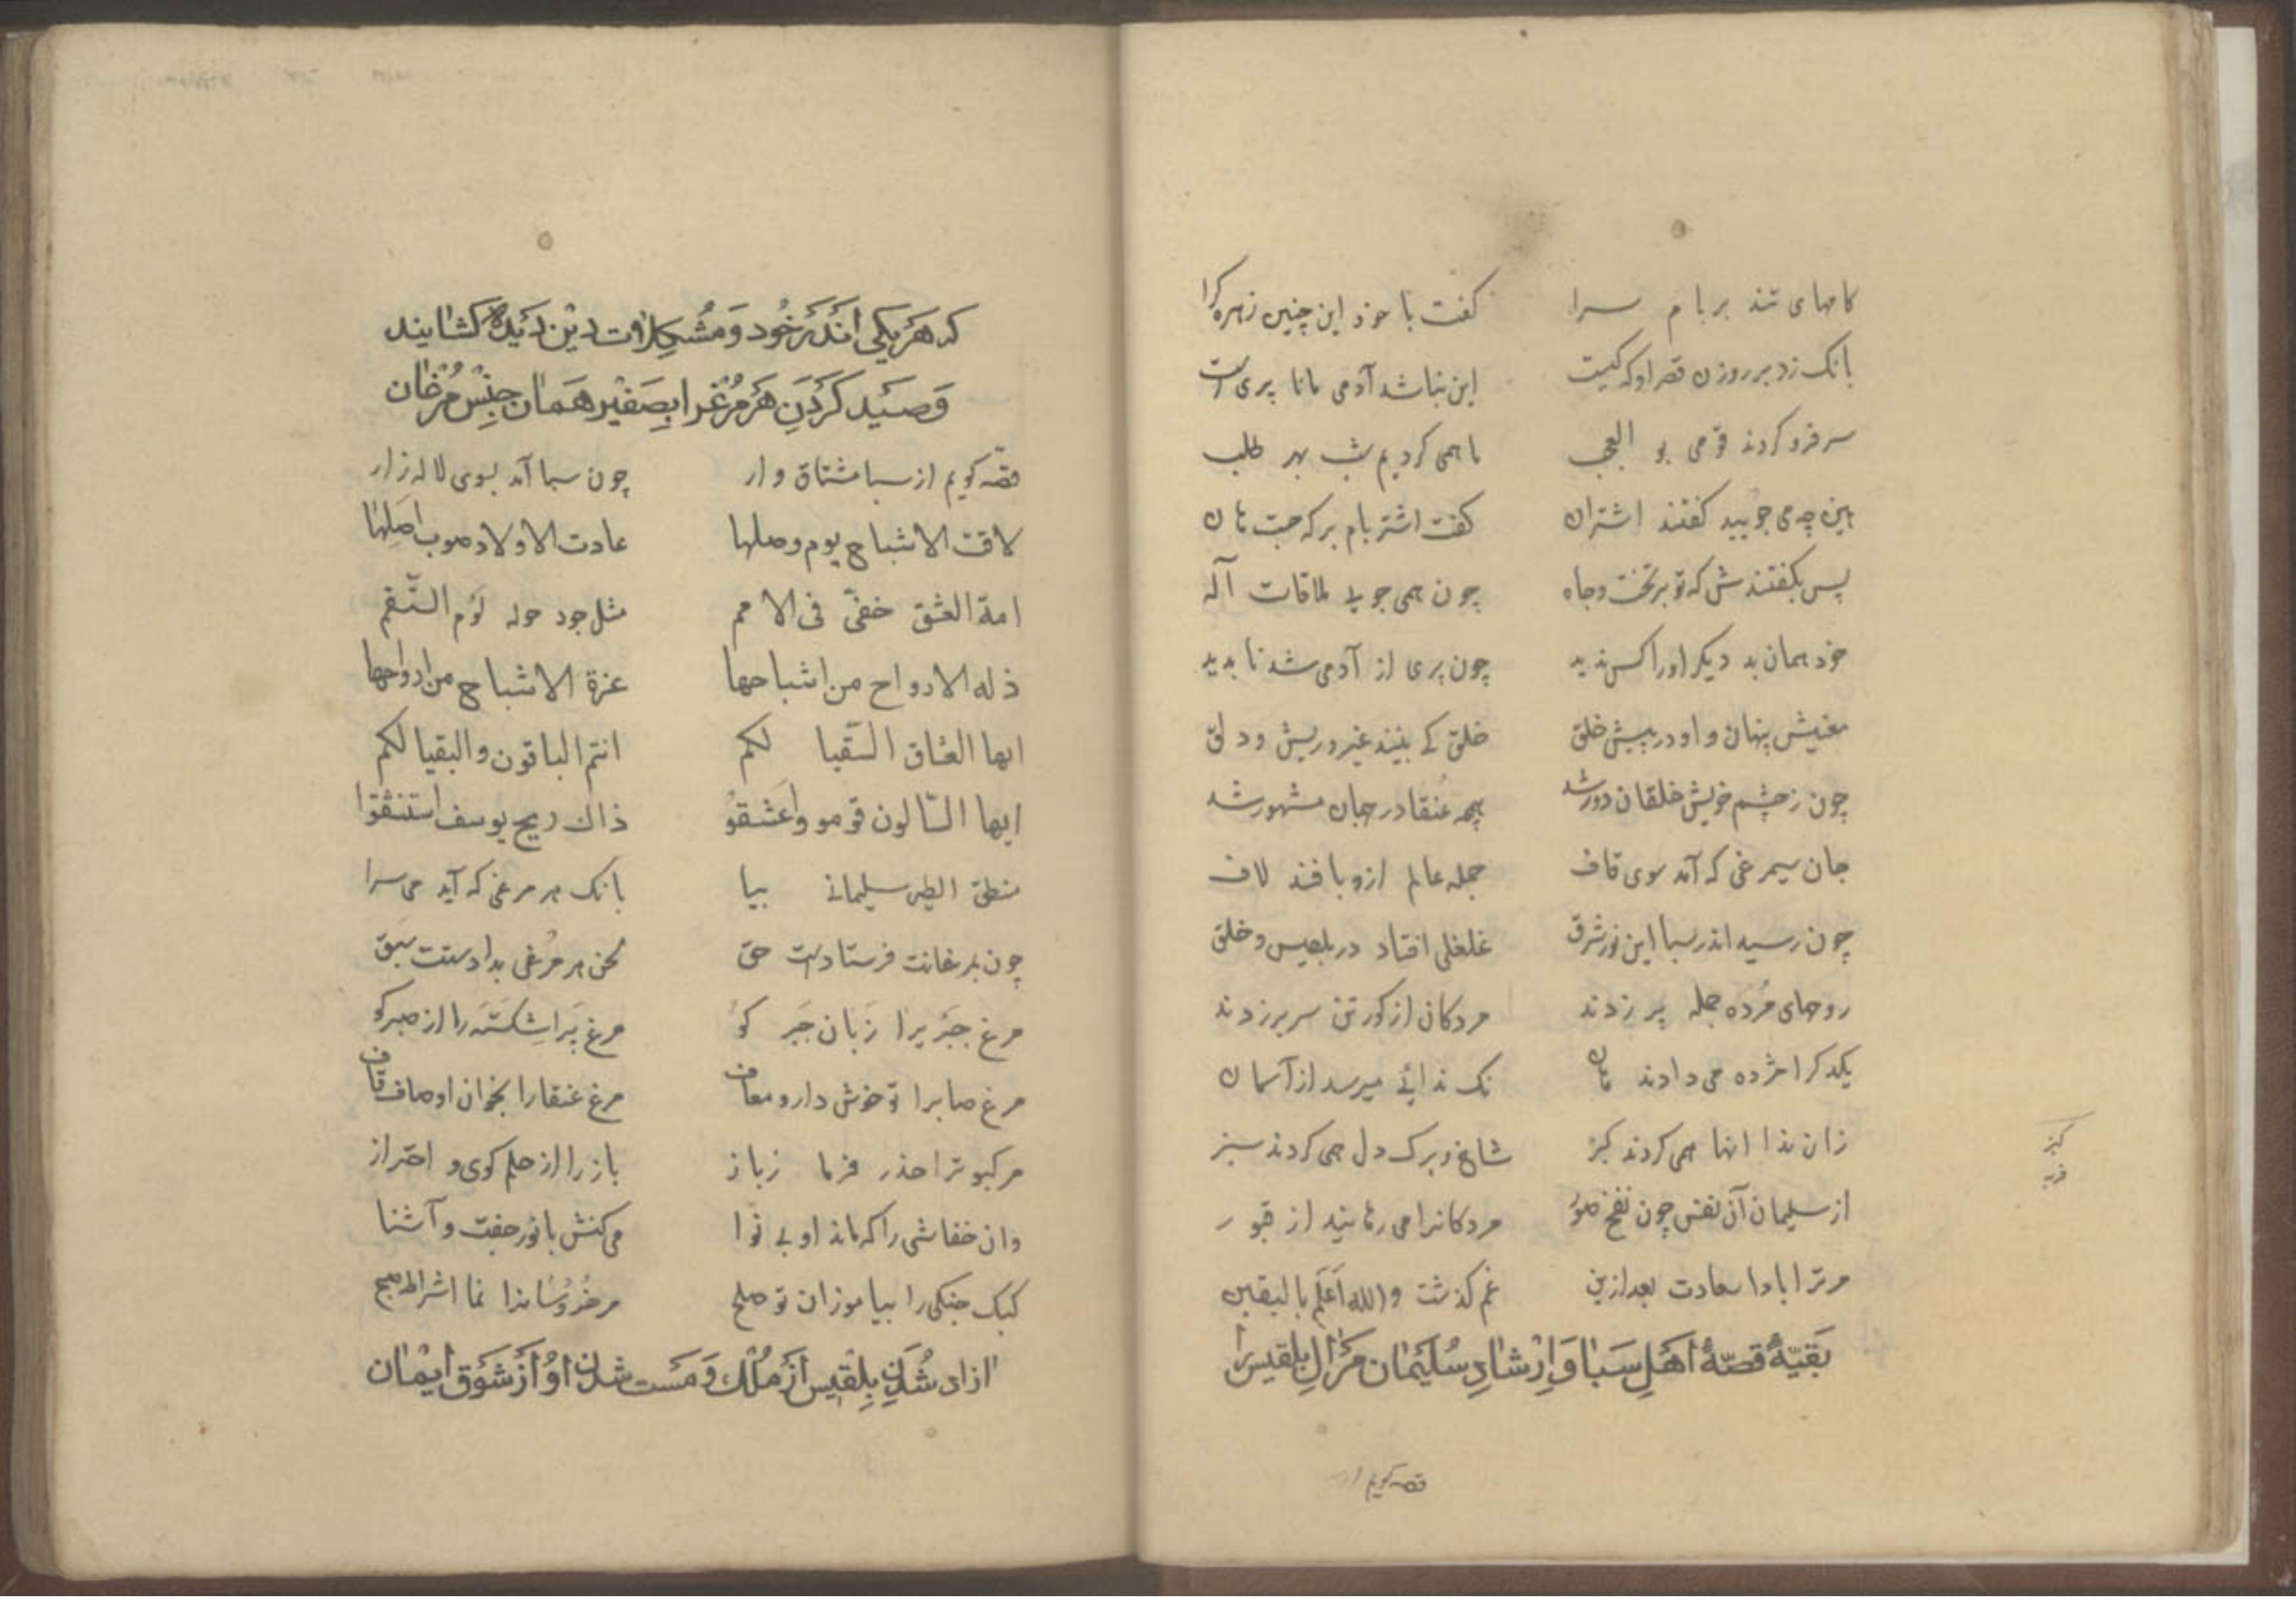 کامهای تند بر بام سرا کفت با خود این چنین زهره کرا
بانک زد بر روزن قصر او که کیست این نباشد آدمی مانا پری است
سر فرو کردند قومی بو العجب ما همی کردیم شب بهر طلب
هین چه می جویید کفتند اشتران کفت اشتر بام بر که جست هان
پس بکفتندش که تو بر تخت و جاه چون همی جویی ملاقات آله
خود همان بد دیکر اورا کس ندید چون پری از آدمی شد نا بدید
معنیش پنهان و او در پیش خلق خلق کی بینند غیر وریش ودلق
چون ز چشم خویش خلقان دور شد همچو عنقا در جهان مشهور شد
جان سیمرغی که آمد سوی قاف جمله عالم ازو بافند لاف
چون رسید اندر سبا این نور شرق غلغلی افتاد در بلقیس و خلق
روحهای مرده جمله پر زدند مردکان از کور تن سر بر زدند
یکدکر را مژده می دادند هان نک ندائی میرسد از آسمان
زان ندا اینها همی کردند کبز شاخ و برک دل همی کردند سبز
کبز
فربه
از سلیمان آن نفس چون نفخ صور مردکانرا می رهانید از قبور
مر ترا بادا سعادت بعد ازین غم کذشت والله اَعلَم بالیقین
بَقیّهٔ قصّهٔ اَهَلِ سَبا وَاِرْشادِ سُلَیْمان مَرْ آلِ بلقیس را
قصه کویم از
که هَر یکی اَندَر خُود وَ مُشکلات دیْن دَیده کشایند
وَصَید کَردَنِ هَر مُرْغرا بصَفیْر هَمان جِنْس مُرغان
قصّه کویم از سبا مشتاق وار چون سبا آمد بسوی لاله زار
لاقت الاشباح یوم وصلها عادت الاولاد صوب اصلها
امة العشق خفیّ فی الامم مثل جود حوله لؤم السّقم
ذله الارواح من اشباحها عزة الاشباح من ارواحها
ایها العشاق السّقیا لکم انتم الباقون والبقیا لکم
ایها السّالون قومو واَعشقوا ذاك ریح یوسف استنشقوا
منطق الطیر سلیمانی بیا بانک هر مرغی که آید می سرا
چون بمرغانت فرستادست حق لحن هر مرغی بدادستت سبق
مرغ جَبریرا زبان جَبر کو مرغ پَر اشِکَستَه را از صبر کو
مرغ صابرا تو خوش دار و معاف مرغ عنقارا بخوان اوصاف قاف
مر کبوتر را حذر فرما زباز باز را از حلم کوی و احتراز
وان خفاشی را که ماند او بی نوا می کنش با نور جفت و آشنا
کبک جنکی را بیاموزان تو صلح مر خُروسانرا نما اشراط صبح
ازاد شُدَنِ بِلْقیس اَز مُلْك وَ مَست شدن اوُ اَز شَوْق ایْمان